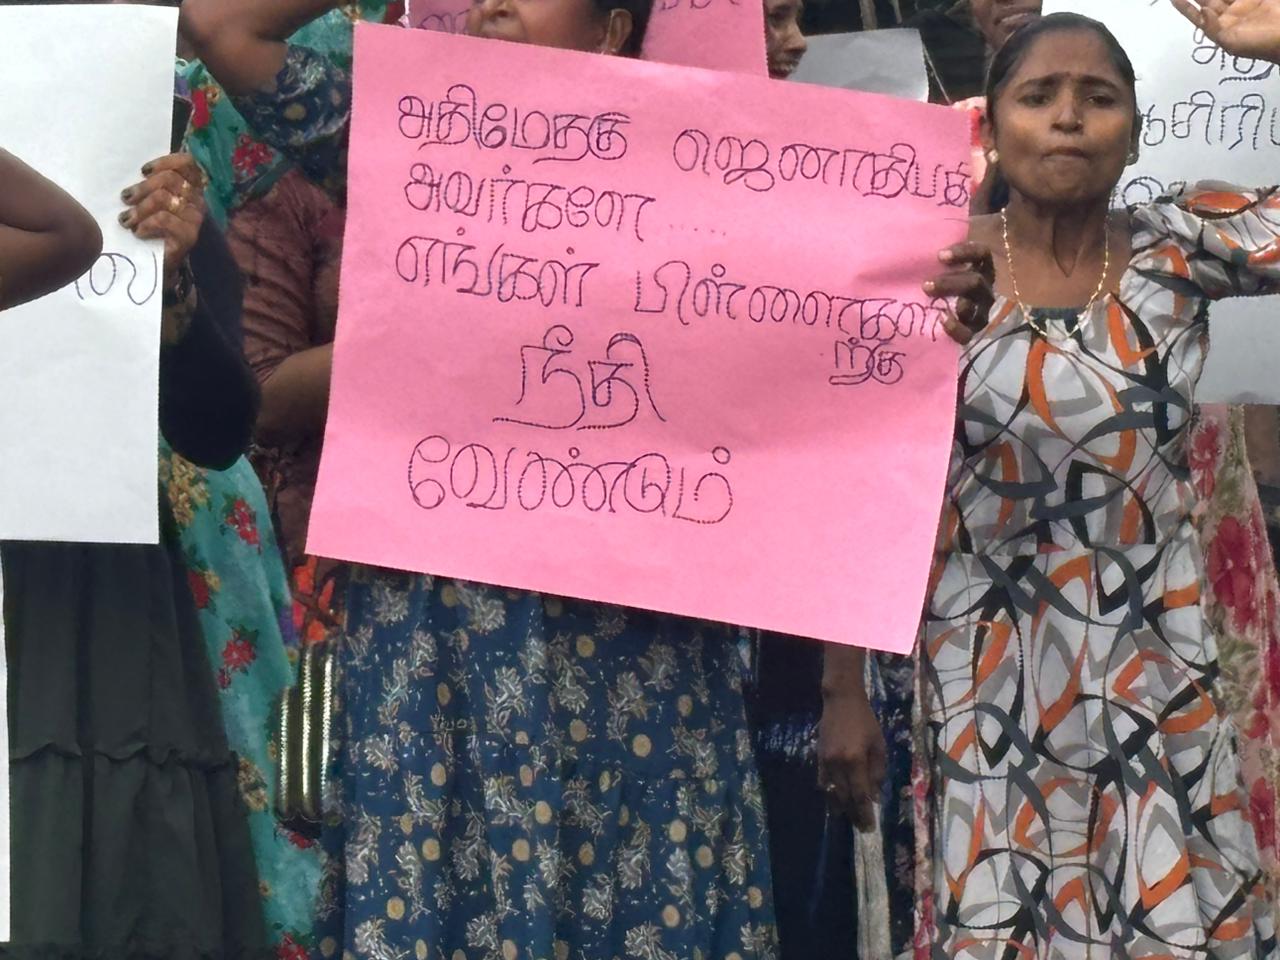 அதிமேதகு ஜெனாதிபதி
அவர்களே .....
எங்கள் பிள்ளைகளி
ற்கு
நீதி
வேண்டும்